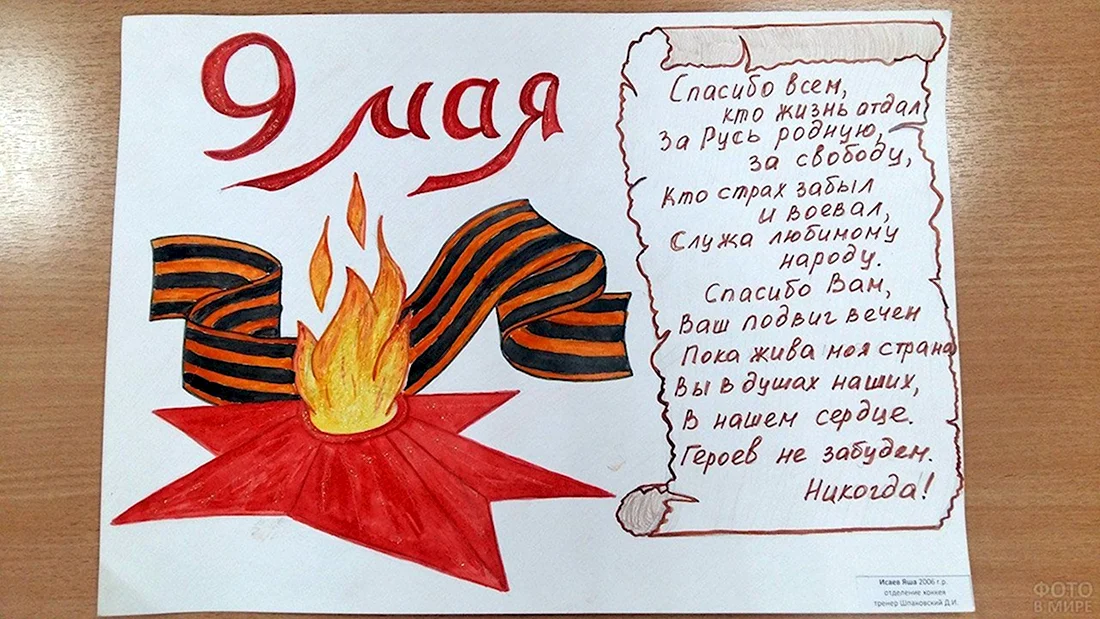 9 мая
Спасибо всем,
кто жизнь отдал
За Русь родную,
за свободу,
Кто страх забыл
и воевал,
Служа любимому
народу.
Спасибо Вам,
Ваш подвиг вечен
Пока жива моя страна
Вы в душах наших,
В нашем сердце.
Героев не забудем.
Никогда!
Исаев Яша 2006 г.р.
отделение хоккея
тренер Шпаковский Д.И.
ФОТО
В МИРЕ